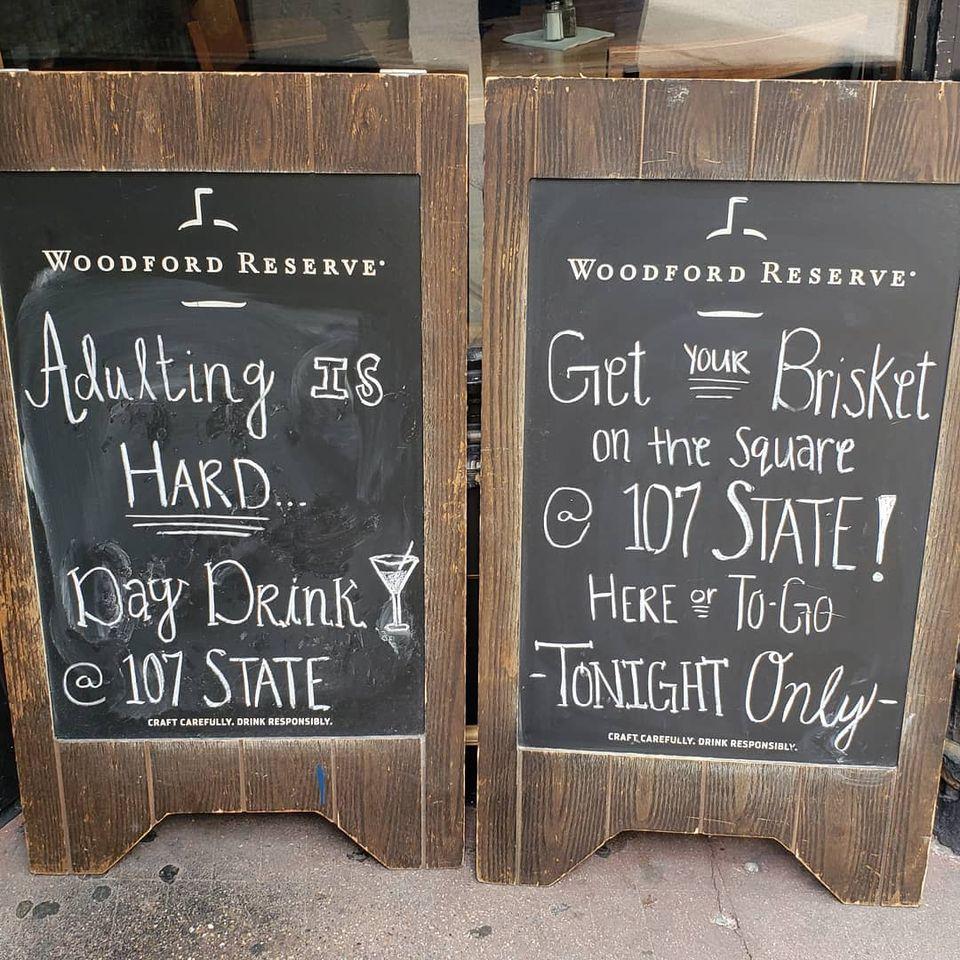 WOODFORD RESERVE
Adulting IS
HARD...
Day Drink
@ 107 STATE
CRAFT CAREFULLY. DRINK RESPONSIBLY.
WOODFORD RESERVE
Get YOUR Brisket
on the Square
@ 107 STATE!
HERE or To-Go
-TONIGHT Only-
CRAFT CAREFULLY. DRINK RESPONSIBLY.